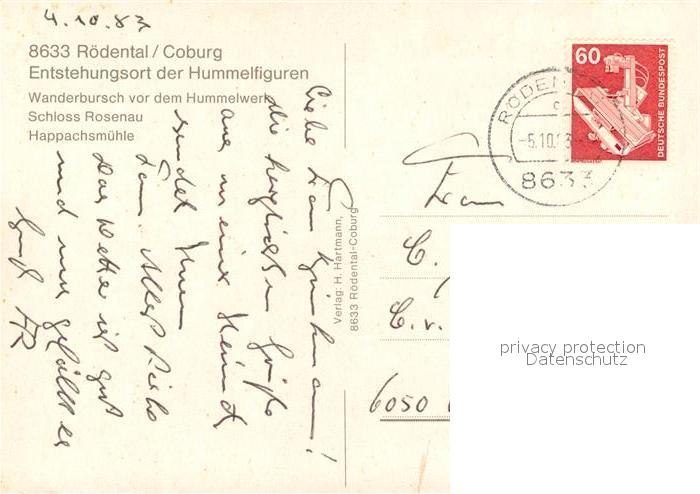 4.10.83
8633 Rödental / Coburg
Entstehungsort der Hummelfiguren
Wanderbursch vor dem Hummelwerk
Schloss Rosenau
Happachsmühle
Liebe Frau
die herzlichsten Grüße
aus meine Heimat
sendet Ihnen
Fam.
Das Wetter ist gut
und uns gefällt es
Gruß
Verlag: H. Hartmann,
8633 Rödental-Coburg
60
DEUTSCHE BUNDESPOST
RÖDEN
-5.10.83
8633
Frau
C.
C. v.
6050
privacy protection
Datenschutz